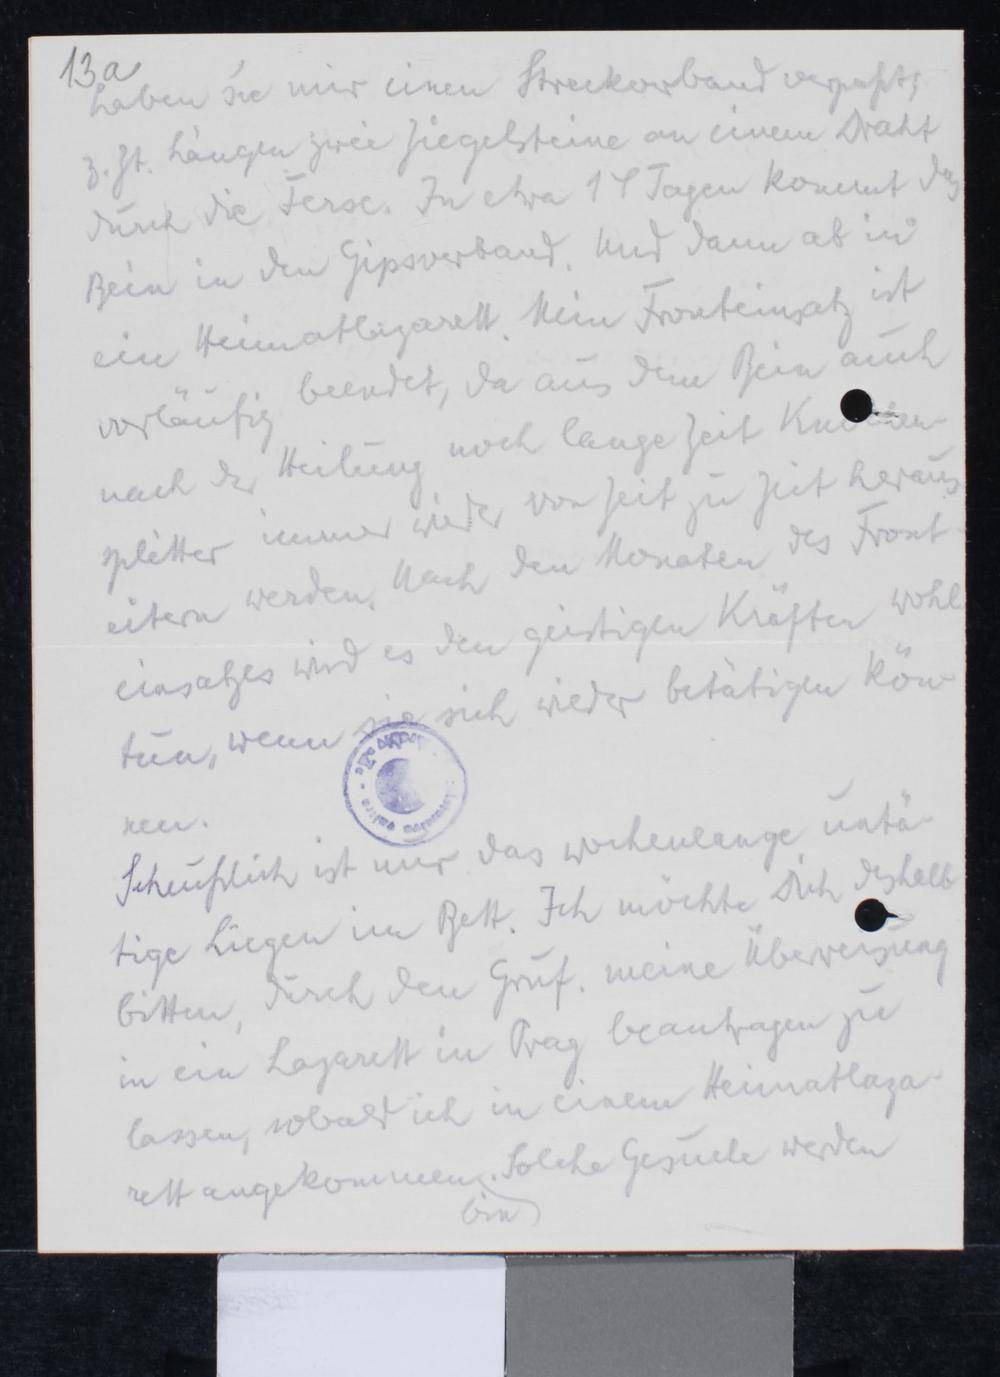 13a
haben sie mir einen Streckverband verpaßt;
z. Zt. hängen zwei Ziegelsteine an einem Draht
durch die Ferse. In etwa 14 Tagen kommt das
Bein in den Gipsverband. Und dann ab in
ein Heimatlazarett. Mein Fronteinsatz ist
vorläufig beendet, da aus dem Bein auch
nach der Heilung noch lange Zeit Knochen-
splitter immer wieder von Zeit zu Zeit heraus
eitern werden. Nach den Monaten des Front-
einsatzes wird es den geistigen Kräften wohl
tun, wenn sie sich wieder betätigen kön-
nen.
Scheußlich ist nur das wochenlange untä-
tige Liegen im Bett. Ich möchte Dich deshalb
bitten, durch den Gruf. meine Überweisung
in ein Lazarett in Prag beantragen zu
lassen, sobald ich in einem Heimatlaza-
rett angekommen bin. Solche Gesuche werden